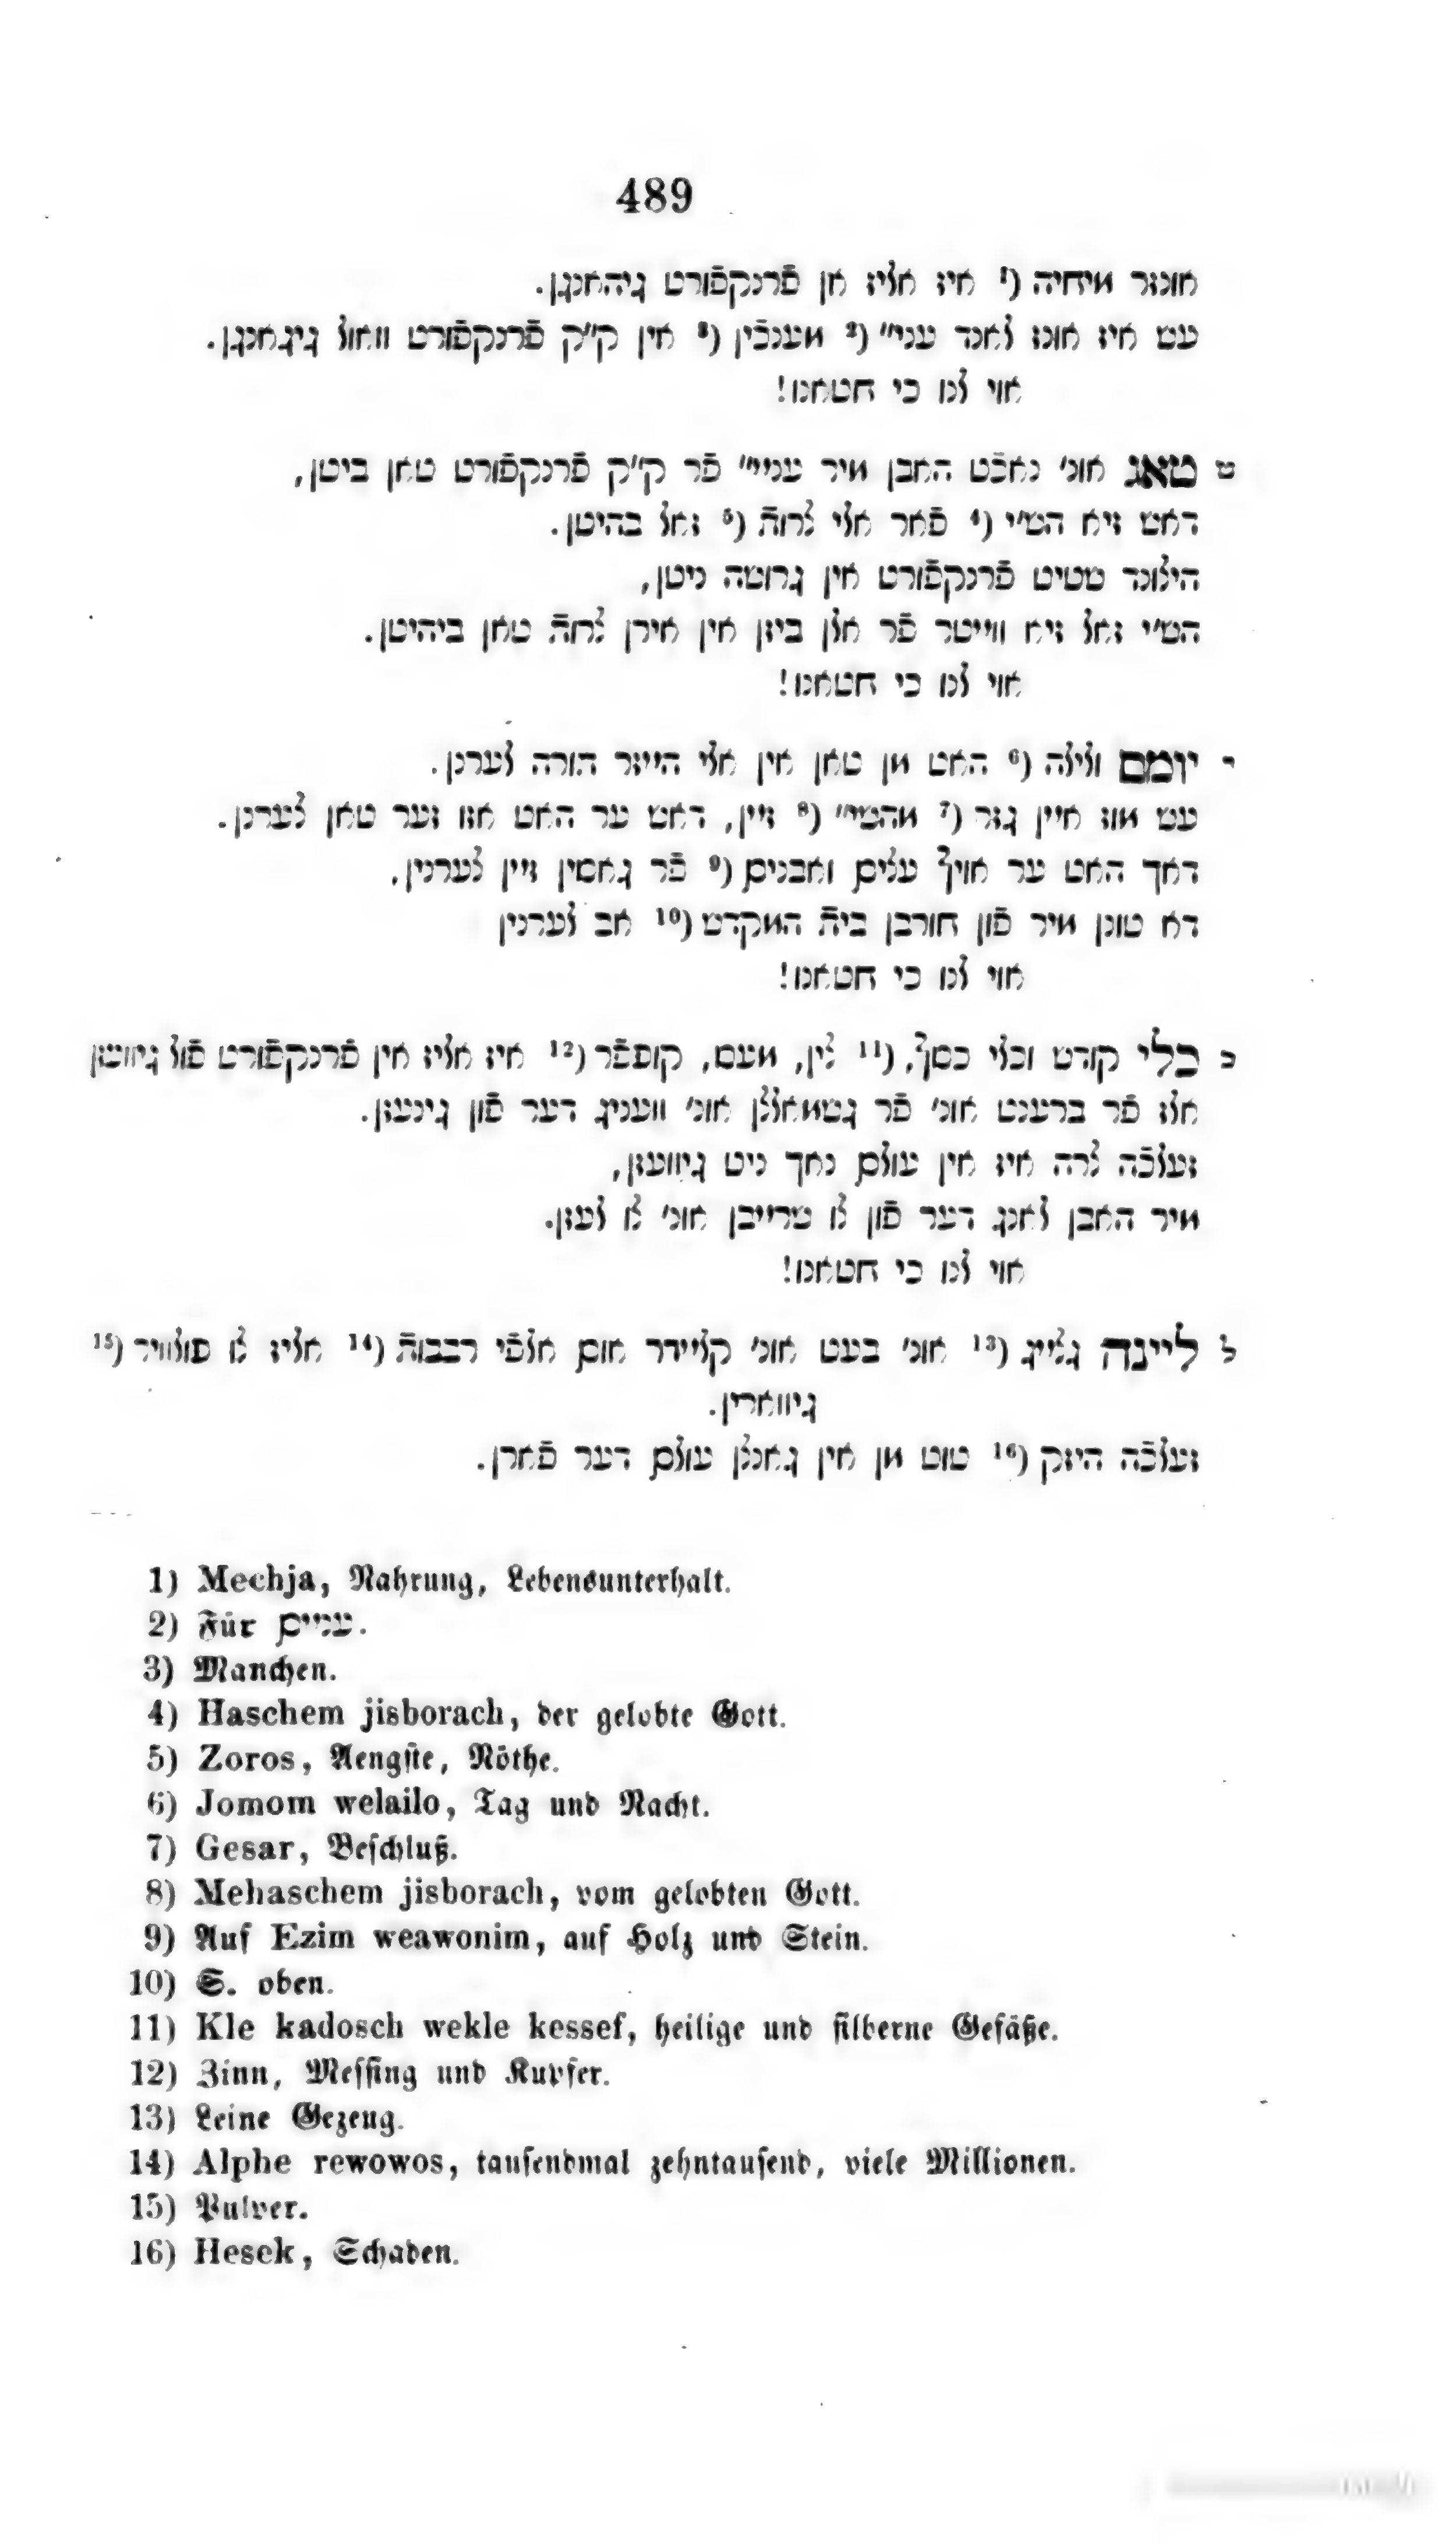 489
אונזר מיחיה (1 איז אליז אן פֿרנקפֿורט גיהאנגן.
עש איז אונז לאנד עני״ (2 מענכֿין (3 אין ק״ק פֿרנקפֿורט וואול גיגאנגן.
אוי לנו כי חטאנו!
ט טאג אונ׳ נאכֿט האבן מיר עמיי״ פֿר ק״ק פֿרנקפֿורט טאן ביטן,
דאש זיא הש״י (4 פֿאר אלי צרותֿ (5 זאל בהיטן.
היצונד שטיט פֿרנקפֿורט אין גרושה ניטן,
הש״י זאל זיא ווייטר פֿר אלן ביזן אין אירן צרותֿ טאן ביהיטן.
אוי לנו כי חטאנו!
י יומם ולילה (6 האט מן טאן אין אלי הייזר תורה לערנן.
עש מוז איין גזר (7 מהשי״ (8 זיין, דאש ער האט אזו זער טאן לערנן.
דאך האט ער אויף עצים ואבנים (9 פֿר גאסין זיין לערנין,
דא טונן מיר פֿון חורבן ביתֿ המקדש (10 אב לערנין
אוי לנו כי חטאנו!
כ כלי קודש וכלי כסף, (11 צין, מעס, קופפֿר (12 איז אליז אין פֿרנקפֿורט פֿול גיוועזן
אלז פֿר ברענט אונ׳ פֿר גשמאלצן אונ׳ וועניג דער פֿון גינעזן.
זעלכֿה צרה איז אין עולם נאך ניט גיוועזן,
מיר האבן לאנג דער פֿון צו שרייבן אונ׳ צו לעזן.
אוי לנו כי חטאנו!
ל ליינה גצייג (13 אונ׳ בעט אונ׳ קליידר אום אלפֿי רבבותֿ (14 אליז צו פולוויר (15
גיווארין.
זעלכֿה היזק (16 טוט מן אין גאנצן עולם דער פֿארן.
1) Mechja, Nahrung, Lebensunterhalt.
2) Für עמיים.
3) Manchen.
4) Haschem jisborach, der gelobte Gott.
5) Zoros, Aengste, Nöthe.
6) Jomom welailo, Tag und Nacht.
7) Gesar, Beschluß.
8) Mehaschem jisborach, vom gelobten Gott.
9) Auf Ezim weawonim, auf Holz und Stein.
10) S. oben.
11) Kle kadosch wekle kessef, heilige und silberne Gefäße.
12) Zinn, Messing und Kupfer.
13) Leine Gezeug.
14) Alphe rewowos, tausendmal zehntausend, viele Millionen.
15) Pulver.
16) Hesek, Schaden.